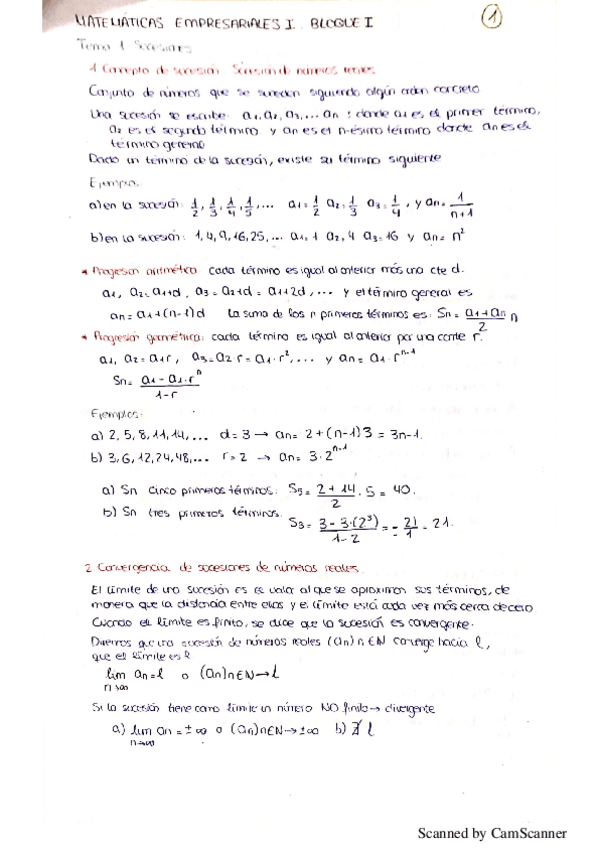 MATEMÁTICAS EMPRESARIALES I. BLOQUE I
1
Tema 1 Sucesiones
1 Concepto de sucesión. Sucesión de números reales
Conjunto de números que se suceden siguiendo algún orden concreto
Una sucesión se escribe: a1, a2, a3, ... an ; donde a1 es el primer término,
a2 es el segundo término y an es el n-ésimo término donde an es el
término general
Dado un término de la sucesión, existe su término siguiente
Ejemplo:
a) en la sucesión: 1/2, 1/3, 1/4, 1/5, ... a1 = 1/2 a2 = 1/3 a3 = 1/4, y an = 1/n+1
b) en la sucesión: 1, 4, 9, 16, 25, ... a1 = 1 a2, 4 a3 = 16 y an = n²
Progresión aritmética: cada término es igual al anterior más una cte d.
a1, a2 = a1+d, a3 = a2+d = a1+2d, ... y el término general es
an = a1 + (n-1)d La suma de los n primeros términos es: Sn = a1+an/2 n
Progresión geométrica: cada término es igual al anterior por una conte r.
a1, a2 = a1r, a3 = a2·r = a1·r², ... y an = a1·rⁿ⁻¹
Sn = a1 - a1·rⁿ/1-r
Ejemplos:
a) 2, 5, 8, 11, 14, ... d = 3 → an = 2 + (n-1)3 = 3n-1.
b) 3, 6, 12, 24, 48, ... r = 2 → an = 3·2ⁿ⁻¹
a) Sn cinco primeros términos: S5 = 2 + 14/2 · 5 = 40.
b) Sn tres primeros términos: S3 = 3 - 3·(2³)/1-2 = -21/-1 = 21.
2 Convergencia de sucesiones de números reales
El límite de una sucesión es el valor al que se aproximan sus términos, de
manera que la distancia entre ellos y el límite está cada vez más cerca de cero
Cuando el límite es finito, se dice que la sucesión es convergente.
Diremos que una sucesión de números reales (an) n∈ℕ converge hacia l,
que el límite es l
lim an = l o (an)n∈ℕ → l
n→∞
Si la sucesión tiene como límite un número NO finito → divergente
a) lim an = ±∞ o (an)n∈ℕ → ±∞ b) ∄ l
n→∞
Scanned by CamScanner